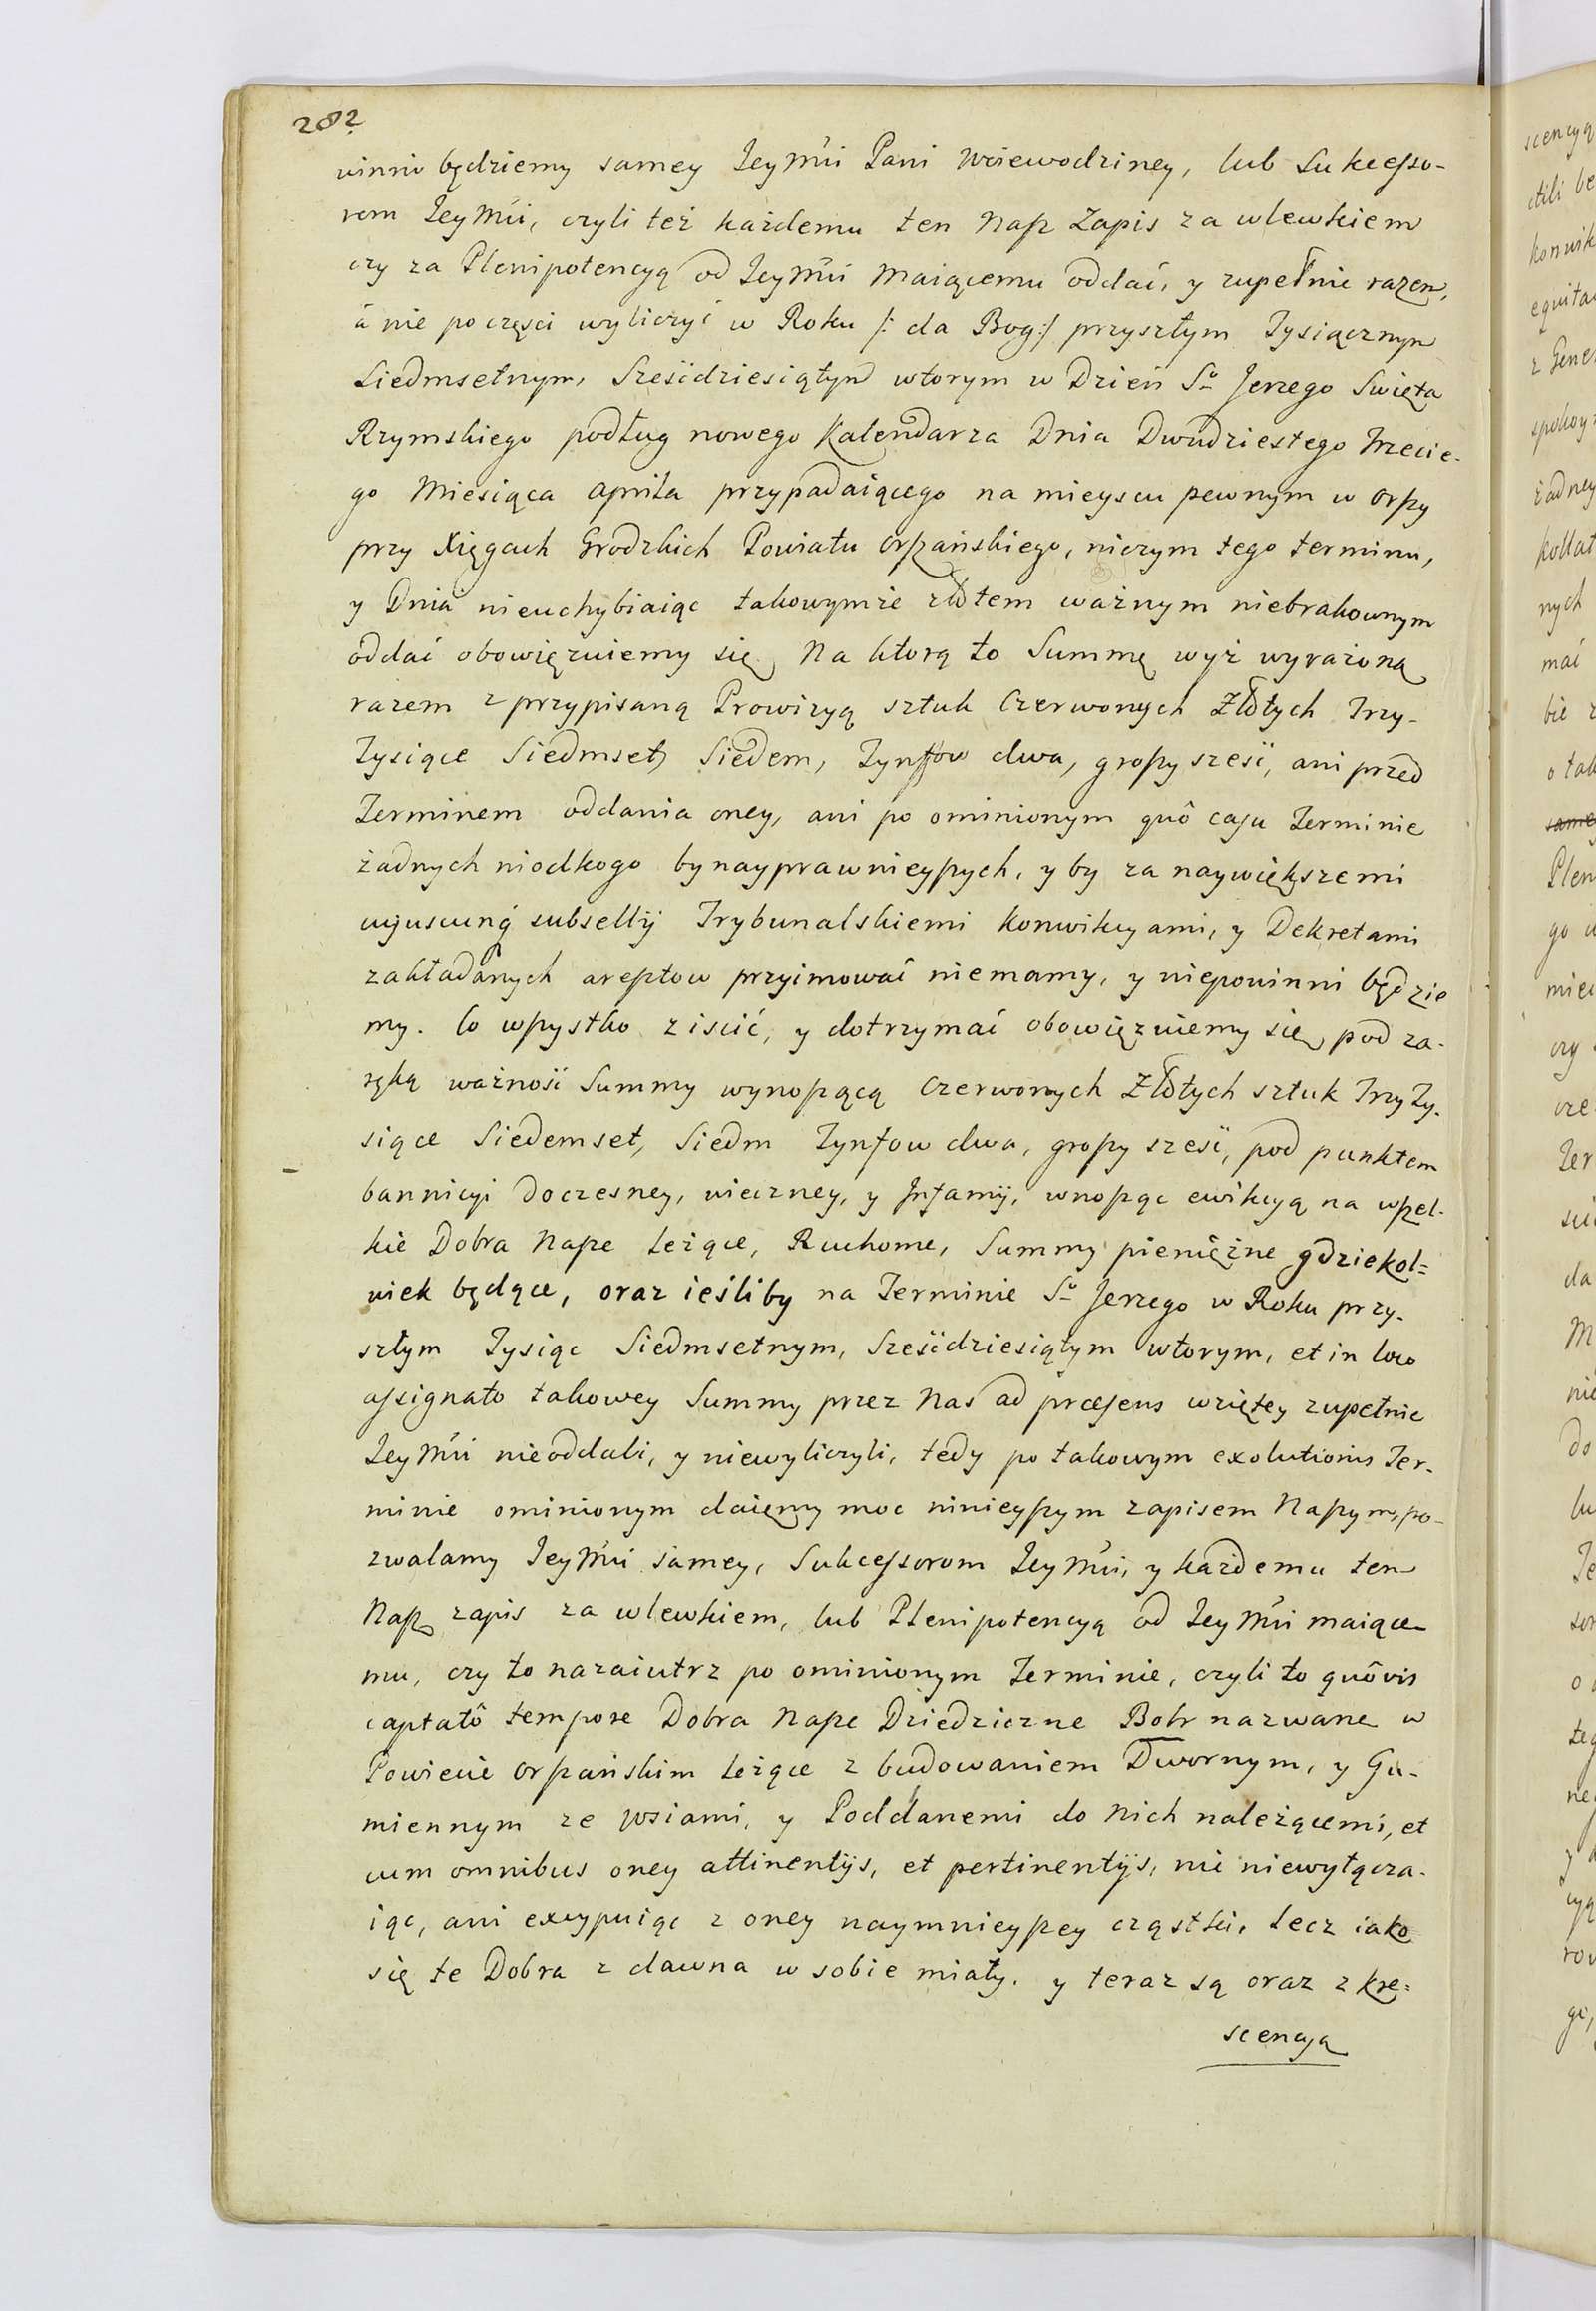 282
winni będziemy samey Jey Mći Pani Woiewodziney, lub Sukcesso-
rom Jey Mći, czyli też każdemu ten Nasz Zapis za wlewkiem
czy za Plenipotencyą od Jey Mći maiącemu oddać, y zupełnie razem,
á nie po częsci wyliczyć w Roku /: da Bog :/ przyszłym Tysiącznym
Siedmsetnym, Sześćdziesiątym wtorym w Dzień So Jerzego Swięta
Rzymskiego podług nowego Kalendarza Dnia Dwudziestego Trzecie-
go Miesiąca Apryla przypadaiącego na mieyscu pewnym w Orszy
przy Xięgach Grodzkich Powiatu Orszańskiego, niczym tego terminu,
y Dnia nieuchybiaiąc takowymże złotem ważnym niebrakownym
oddać obowięzuiemy się, Na ktorą to Summę wyż wyrażoną
razem z przypisaną Prowizyą sztuk Czerwonych Złotych Trzy-
Tysiące Siedmset Siedem, Tynffow dwa, groszy sześć, ani przed
Terminem oddania oney, ani po ominionym quô casu Terminie
żadnych niodkogo by nayprawnieyszych, y by za naywiększemi
cujuscunq subsellij Trybunalskiemi Konwikcyami, y Dekretami
zakładanych aresztow przyimować niemamy, y niepowinni będzie
my. Co wszystko ziscić, y dotrzymać obowięzuiemy się, pod za-
ręką ważnośći Summy wynoszącą Czerwonych Złotych sztuk Trzy Ty-
siące Siedemset, Siedm Tynfow dwa, groszy sześć, pod punktem
bannicyi doczesney, wieczney, y Infamij, wnosząc ewikcyą na wszel-
kie Dobra Nasze leżące, Ruchome, Summy pieniężne gdziekol=
wiek będące, oraz ieśliby na Terminie So Jerzego w Roku przy-
szłym Tysiąc Siedmsetnym, Sześćdziesiątym wtorym, et in loco
assignato takowey Summy przez Nas ad præsens wziętey zupełnie
Jey Mći nieoddali, y niewyliczyli, tedy po takowym exolutionis Ter-
minie ominionym daięmy moc ninieyszym zapisem Naszym, po-
zwalamy Jey Mći samey, Sukcessorom Jey Mći, y każdemu ten
Nasz zapis za wlewkiem, lub Plenipotencyą od Jey Mći maiące-
mu, czy to nazaiutrz po ominionym Terminie, czyli to quôvis
captatô tempore Dobra Nasze Dziedziczne Bobr nazwane w
Powiecie Orszańskim leżące z budowaniem Dwornym, y Gu-
miennym ze wsiami, y Poddanemi do nich należącemi, et
cum omnibus oney attinentijs, et pertinentijs, nic niewyłącza-
iąc, ani excypuiąc z oney naymnieyszey cząstki, lecz iako
się te Dobra z dawna w sobie miały, y teraz są oraz z kre=
scencyą